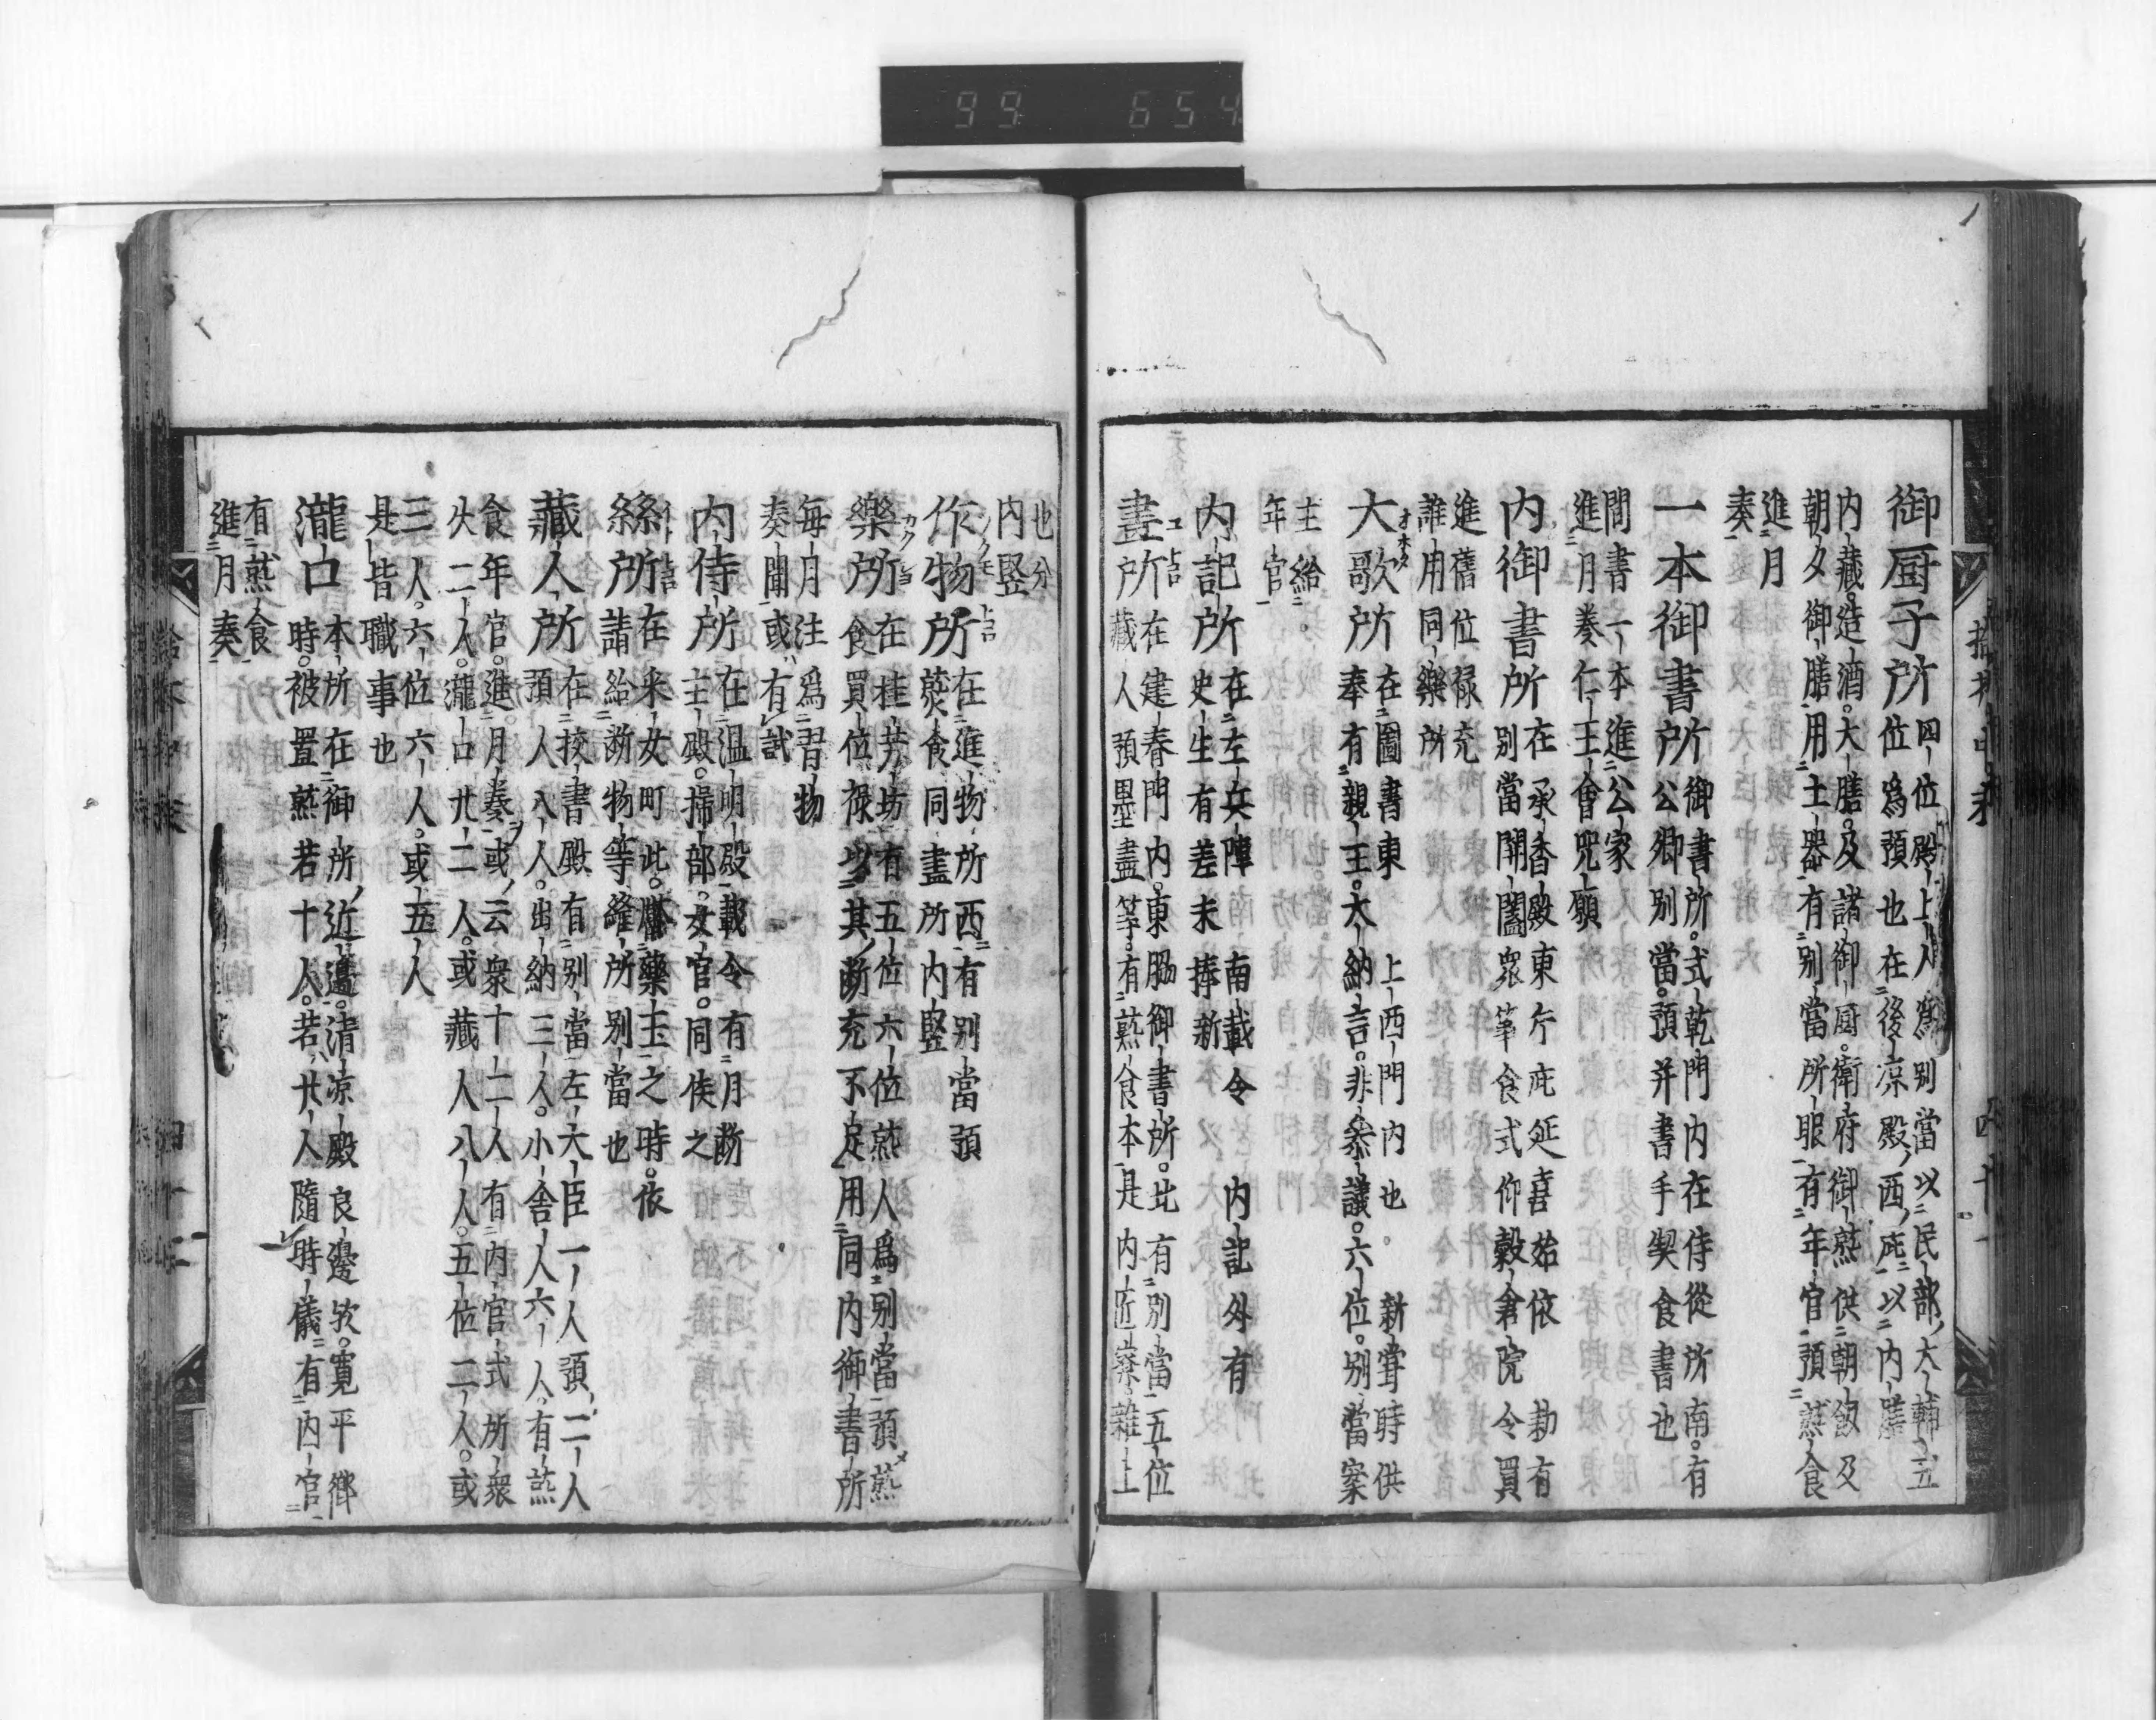 99 654
御厨子所 四位殿上人爲別當以民部大輔五
位爲預也在後涼殿西庇以内膳
内藏造酒大膳及諸御厨衛府御熬供朝飯及
朝夕御膳用土器有別當所眼有年官預熬食
進月
奏
一本御書所 御書所式乾門内在侍從所南有
公卿別當預并書手契食書也
間書一本進公家
進月奏仁王會呪願
内御書所 在承香殿東片庇延喜始依 勅有
別當開闔衆等食式仰穀倉院令買
進舊位禄充
誰用同樂所
大歌所 在圖書東 上西門内也 新甞時供
奉有親王大納言非參議六位別當案
主給
年官
内記所 在左兵陣 南載令 内記外有
史生有差未捧新
畫所 在建春門内東脇御書所北有別當五位
藏人預墨畫等有熬食本是内匠寮雜工
也分
内竪
作物所 在進物所西有別當預
熬食同畫所内竪
樂所 在桂芳坊有五位六位熬人爲別當預熬
食買位禄以其新充不足用同内御書所
毎月注爲習物
奏聞或有試
内侍所 在温明殿載令有月新
主殿掃部女官同侯之
絲所 在釆女町此膺藥玉之時依
請給新物等縫所別當也
藏人所 在挍書殿有別當左大臣一人預二人
預人八人出納三人小舎人六人有熬
食年官進月奏或云衆十二人有内官式所衆
火二人瀧口廿二人或藏人八人五位二人或
三人六位六人或五人
是皆職事也
瀧口 本所在御所近邊清凉殿良邊欤寛平御
時被置熬若十人若廿人隨時儀有内官
有熬食
進月奏